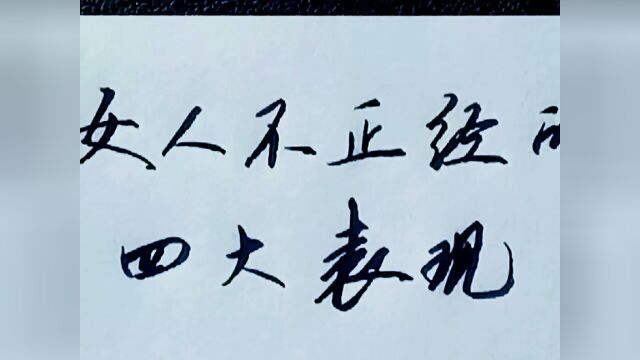 女人不正经的
四大表现